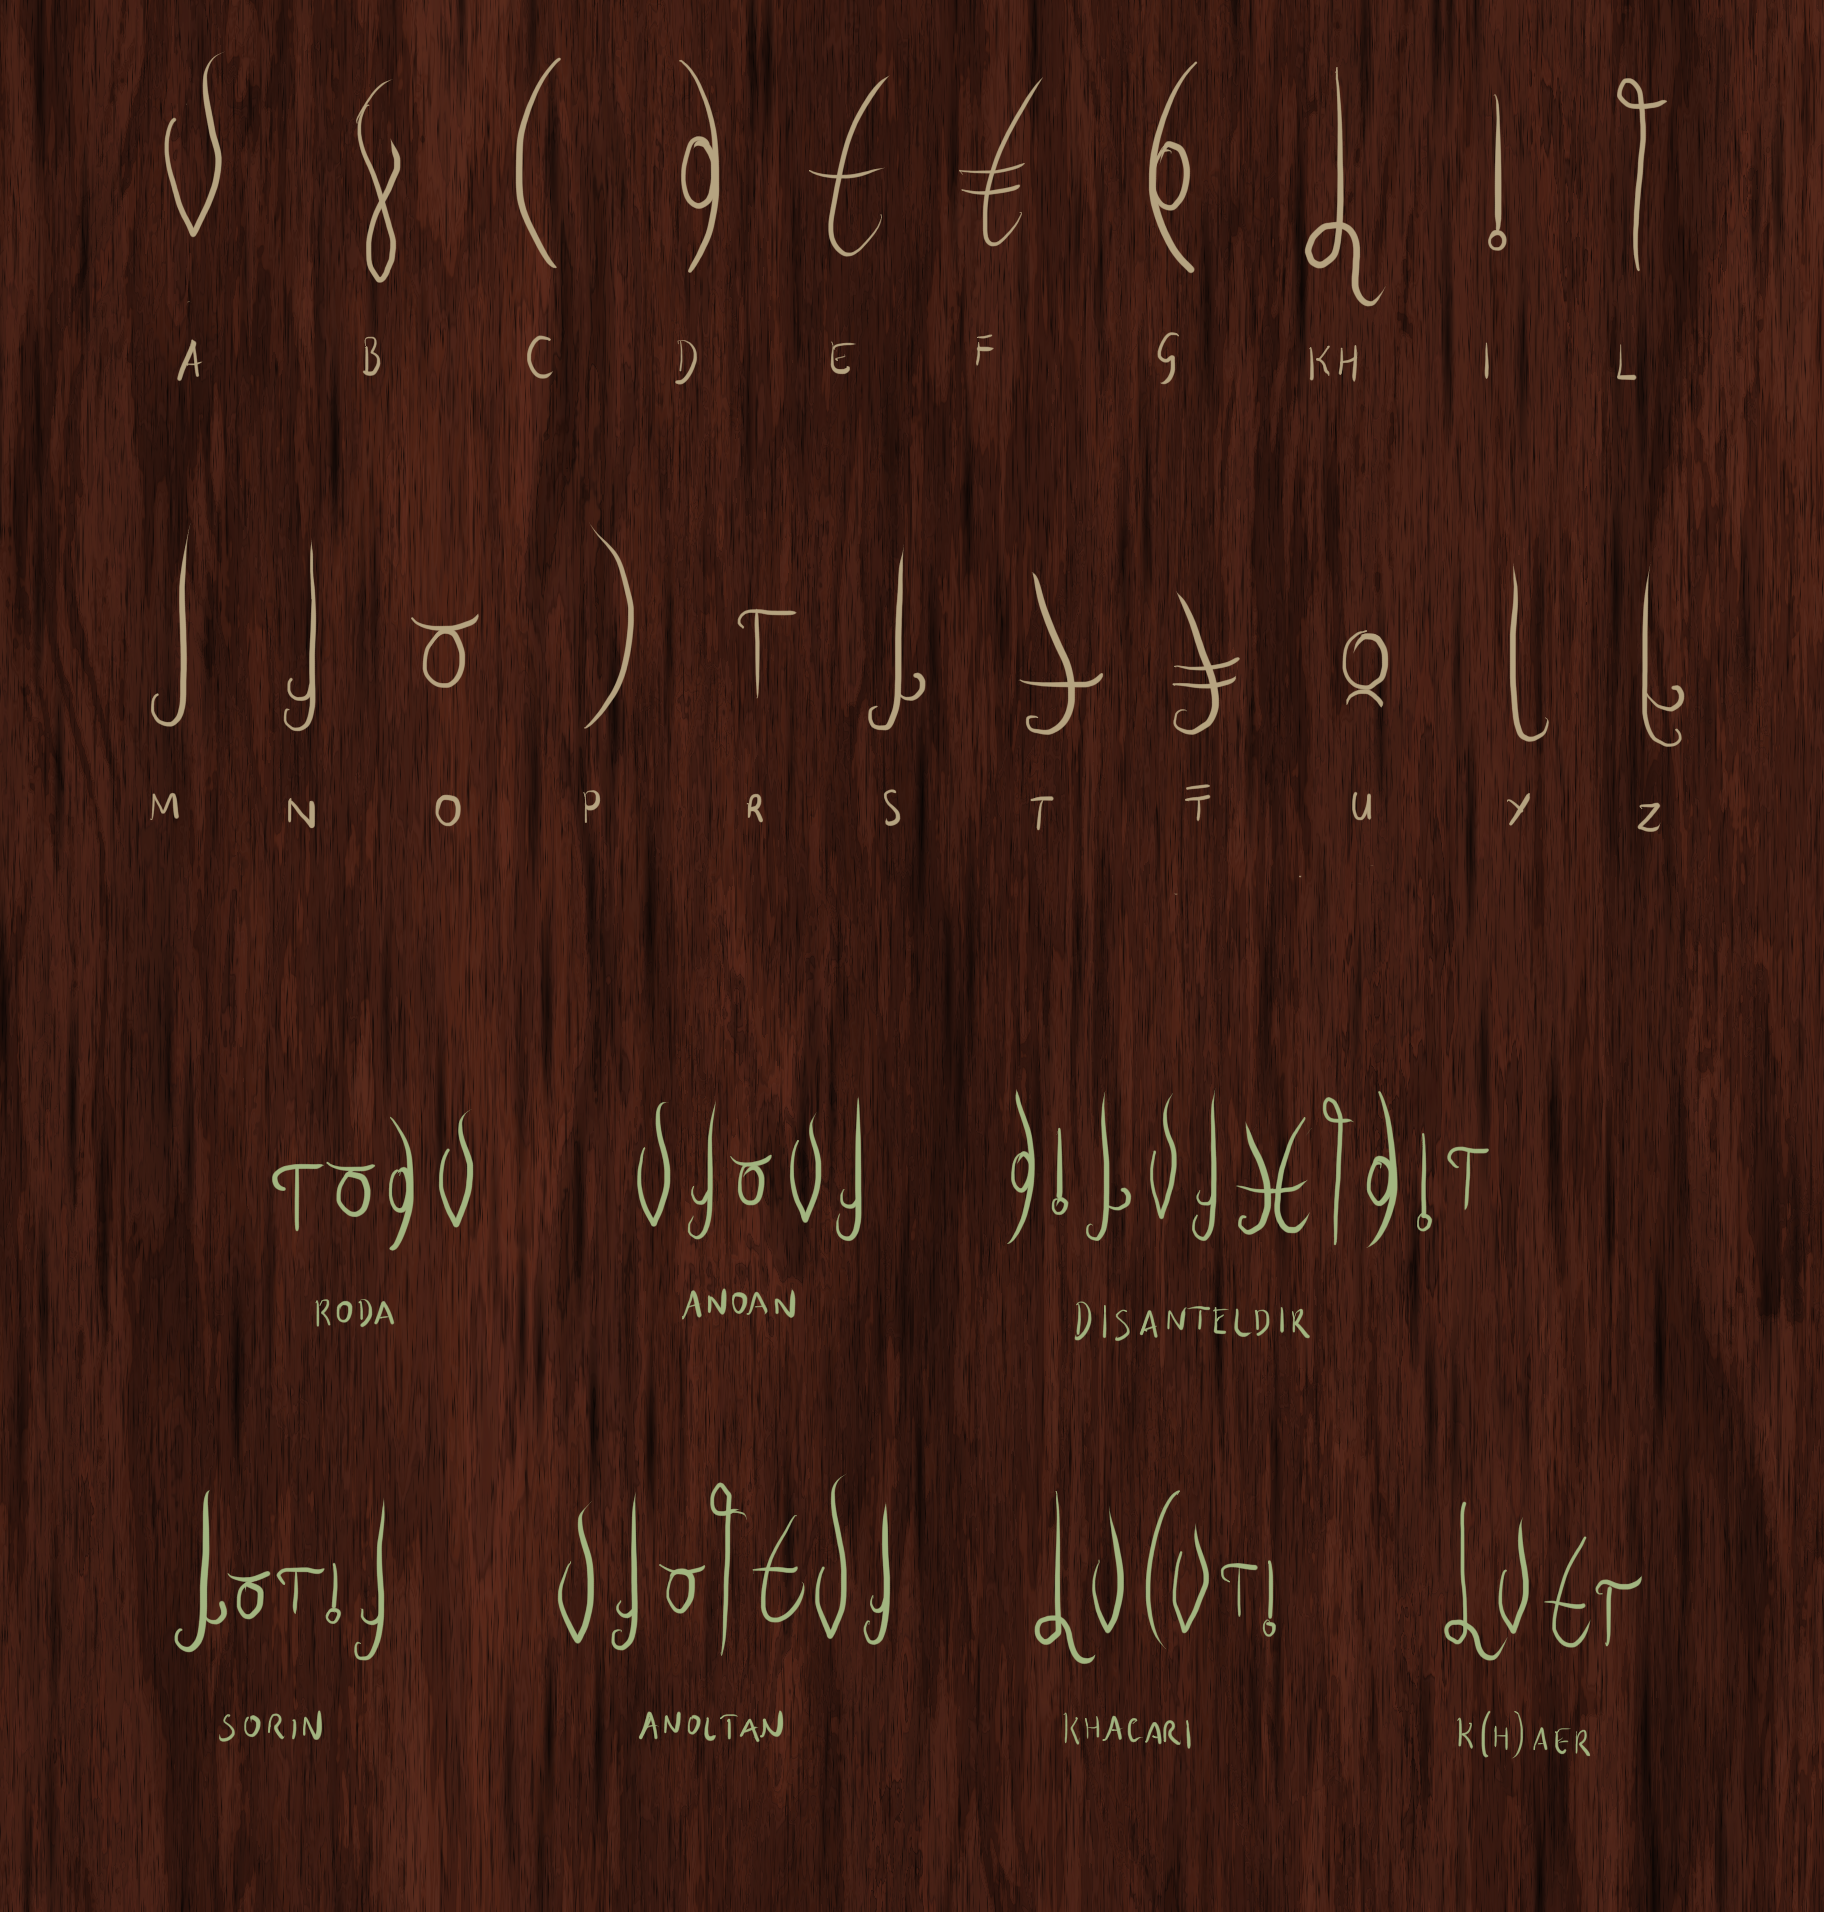 A B C D E F G KH I L
M N O P R S T Ŧ U Y Z
RODA ANOAN DISANTELDIR
SORIN ANOLTAN KHACARI K(H)AER